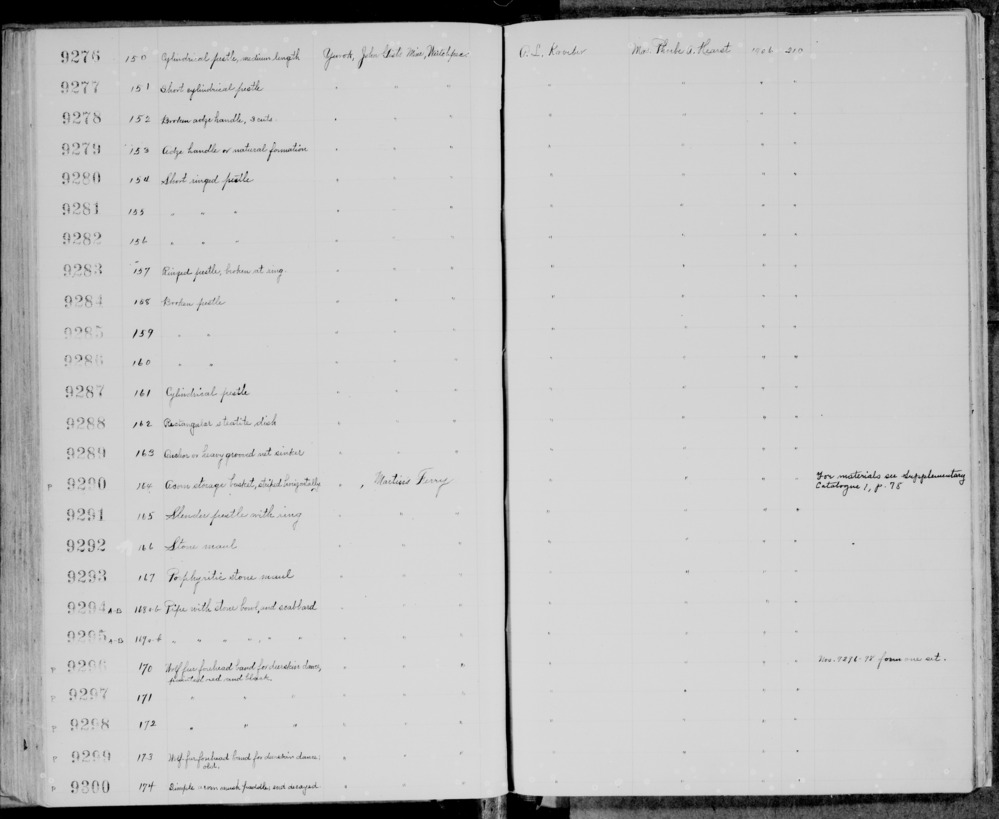 9276 150 Cylindrical pestle, medium length Yurok, John Gist Mine, A. L. Kroeber Mrs. Phebe A. Hearst 1906 210
9277 151 Short cylindrical pestle " " " " " " "
9278 152 Broken adze handle, " " " " " " "
9279 153 Adze handle or natural formation " " " " " " "
9280 154 Short ringed pestle " " " " " " "
9281 155 " " " " " " " " " "
9282 156 " " " " " " " " " "
9283 157 Ringed pestle, broken at ring. " " " " " " "
9284 158 Broken pestle " " " " " " "
9285 159 " " " " " " " " "
9286 160 " " " " " " " " "
9287 161 Cylindrical pestle " " " " " " "
9288 162 Rectangular steatite dish " " " " " " "
9289 163 Anchor or heavy ground net sinker " " " " " " "
P 9290 164 Acorn storage basket, striped horizontally " , Martins Ferry " " " " For materials see Supplementary
Catalogue 1, p. 78
9291 165 Slender pestle with ring " " " " " " "
9292 166 Stone maul " " " " " " "
9293 167 Porphyritic stone maul " " " " " " "
9294 A-B 168a-b Pipe with stone bowl, and scabbard " " " " " " "
9295 A-B 169a-b " " " " , " " " " " " " " "
P 9296 170 Wolf fur forehead band for deerskin dance, " " " " " " " Nos. 9296-98 form one set.
painted red and black.
P 9297 171 " " " " " " " " " "
P 9298 172 " " " " " " " " " "
P 9299 173 Wolf fur forehead band for deerskin dance. " " " " " " "
old.
P 9300 174 Simple acorn mush paddle, end decayed " " " " " " "